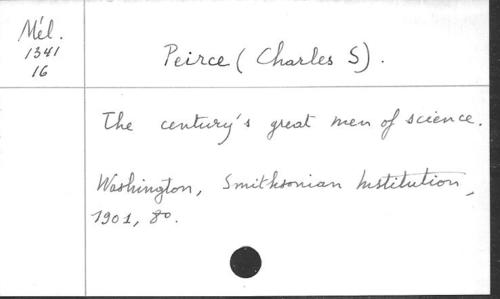 Mél.
1341
16
Peirce (Charles S).
The century's great men of science.
Washington, Smithsonian Institution,
1901, 8o.